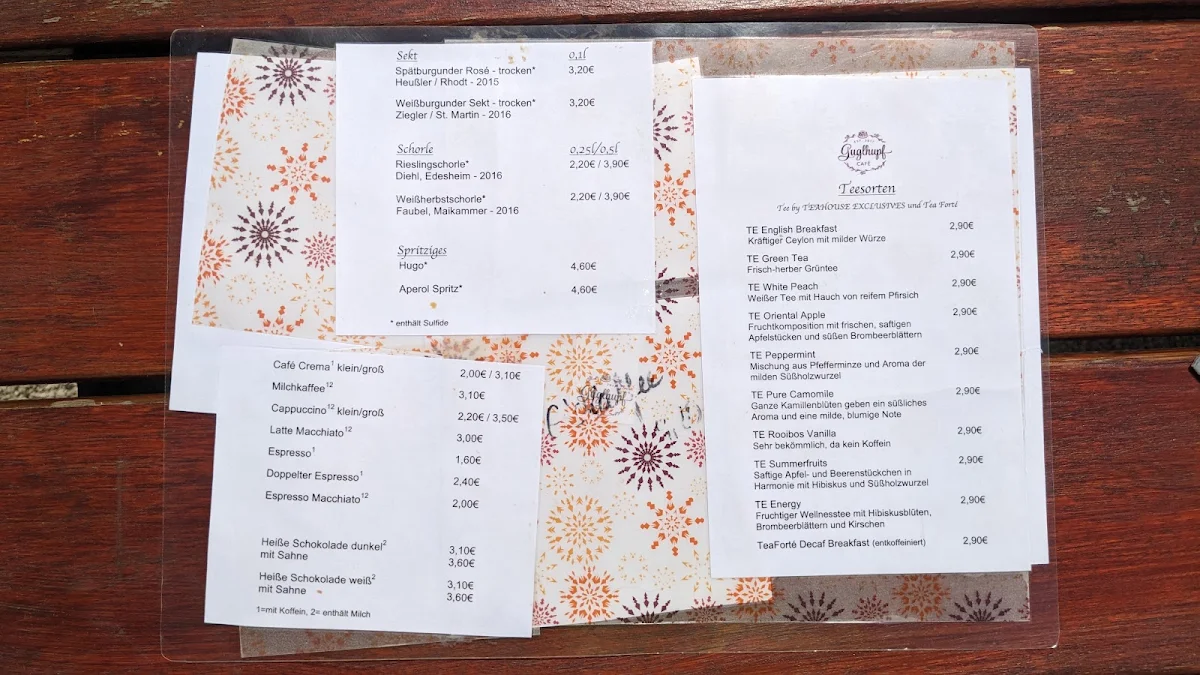 Sekt 0,1l
Spätburgunder Rosé - trocken* 3,20€
Heußler / Rhodt - 2015
Weißburgunder Sekt - trocken* 3,20€
Ziegler / St. Martin - 2016
Schorle 0,25l/0,5l
Rieslingschorle* 2,20€ / 3,90€
Diehl, Edesheim - 2016
Weißherbstschorle* 2,20€ / 3,90€
Faubel, Maikammer - 2016
Spritziges
Hugo* 4,60€
Aperol Spritz* 4,60€
* enthält Sulfide
Café Crema¹ klein/groß 2,00€ / 3,10€
Milchkaffee¹² 3,10€
Cappuccino¹² klein/groß 2,20€ / 3,50€
Latte Macchiato¹² 3,00€
Espresso¹ 1,60€
Doppelter Espresso¹ 2,40€
Espresso Macchiato¹² 2,00€
Heiße Schokolade dunkel² 3,10€
mit Sahne 3,60€
Heiße Schokolade weiß² 3,10€
mit Sahne 3,60€
1=mit Koffein, 2= enthält Milch
Guglhupf
Guglhupf
CAFÉ
Teesorten
Tee by TEAHOUSE EXCLUSIVES und Tea Forté
TE English Breakfast 2,90€
Kräftiger Ceylon mit milder Würze
TE Green Tea 2,90€
Frisch-herber Grüntee
TE White Peach 2,90€
Weißer Tee mit Hauch von reifem Pfirsich
TE Oriental Apple 2,90€
Fruchtkomposition mit frischen, saftigen
Apfelstücken und süßen Brombeerblättern
TE Peppermint 2,90€
Mischung aus Pfefferminze und Aroma der
milden Süßholzwurzel
TE Pure Camomile 2,90€
Ganze Kamillenblüten geben ein süßliches
Aroma und eine milde, blumige Note
TE Rooibos Vanilla 2,90€
Sehr bekömmlich, da kein Koffein
TE Summerfruits 2,90€
Saftige Apfel- und Beerenstückchen in
Harmonie mit Hibiskus und Süßholzwurzel
TE Energy 2,90€
Fruchtiger Wellnesstee mit Hibiskusblüten,
Brombeerblättern und Kirschen
TeaForté Decaf Breakfast (entkoffeiniert) 2,90€